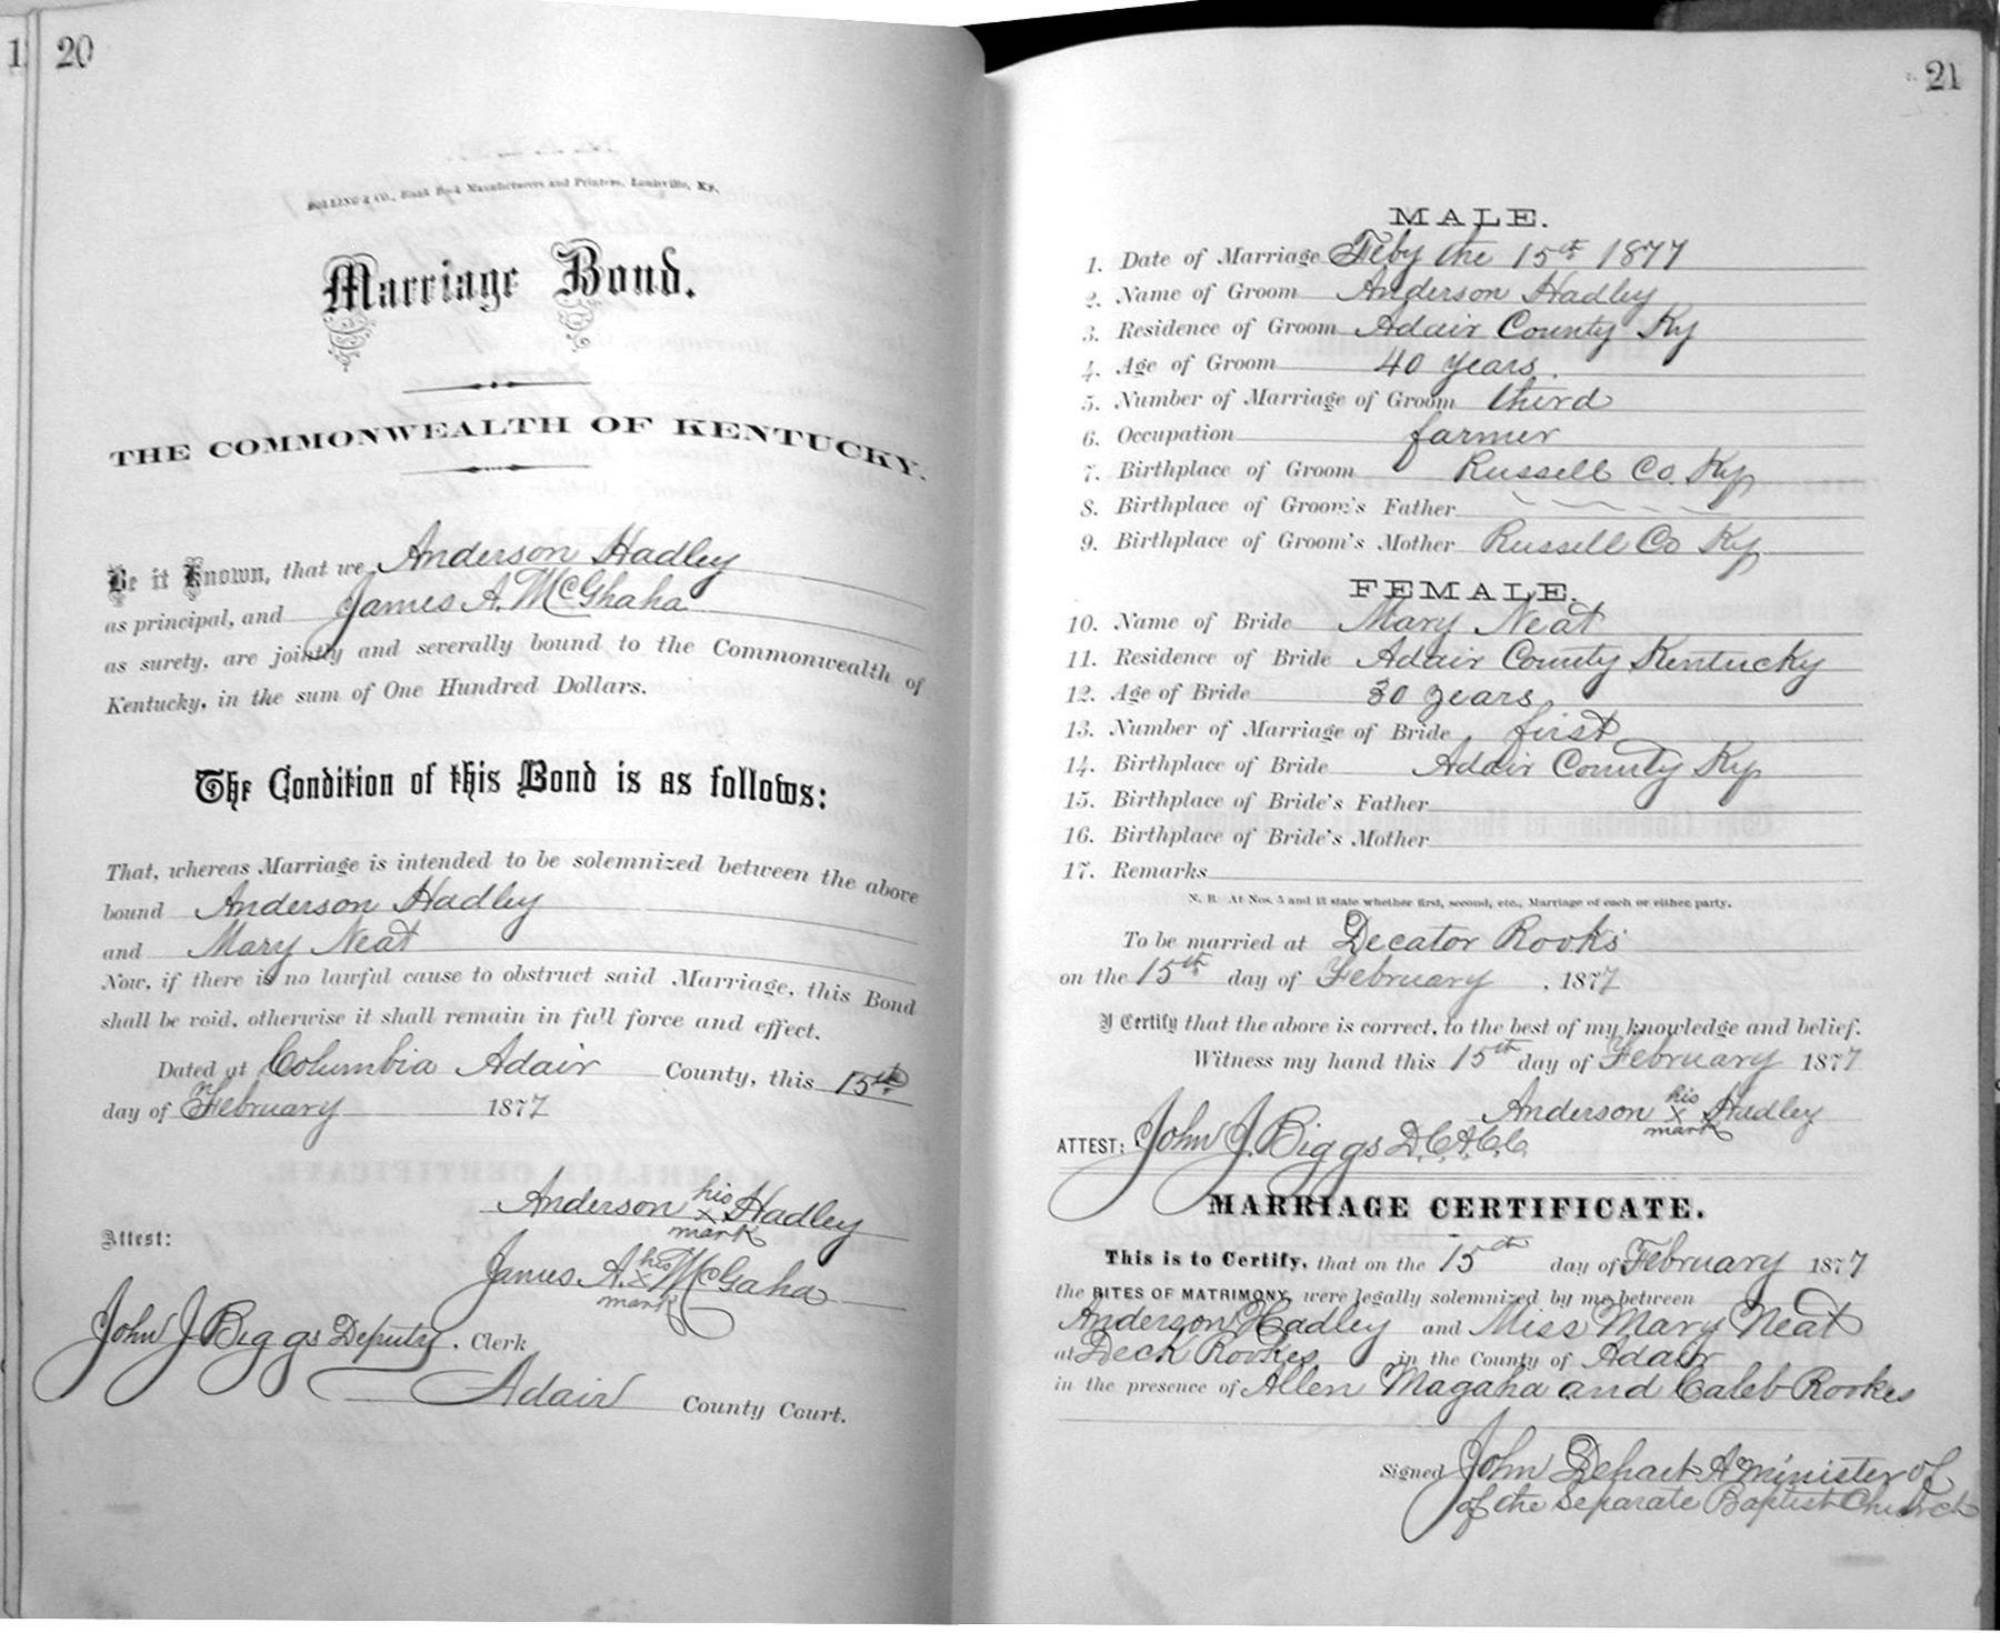 20
BOLLING & CO., Blank Book Manufacturers and Printers, Louisville, Ky.
Marriage Bond.
THE COMMONWEALTH OF KENTUCKY.
Be it Known, that we Anderson Hadley
as principal, and James A. McGhaha
as surety, are jointly and severally bound to the Commonwealth of
Kentucky, in the sum of One Hundred Dollars.
The Condition of this Bond is as follows:
That, whereas Marriage is intended to be solemnized between the above
bound Anderson Hadley
and Mary Neat
Now, if there is no lawful cause to obstruct said Marriage, this Bond
shall be void, otherwise it shall remain in full force and effect.
Dated at Columbia Adair County, this 15th
day of February 1877
Anderson his x mark Hadley
Attest:
James A. his x mark McGaha
John J. Biggs Deputy. Clerk
Adair County Court.
21
MALE.
1. Date of Marriage Feby the 15th 1877
2. Name of Groom Anderson Hadley
3. Residence of Groom Adair County Ky
4. Age of Groom 40 years.
5. Number of Marriage of Groom third
6. Occupation farmer
7. Birthplace of Groom Russell Co. Ky
8. Birthplace of Groom's Father
9. Birthplace of Groom's Mother Russell Co Ky
FEMALE.
10. Name of Bride Mary Neat
11. Residence of Bride Adair County Kentucky
12. Age of Bride 30 years.
13. Number of Marriage of Bride first
14. Birthplace of Bride Adair County Ky
15. Birthplace of Bride's Father
16. Birthplace of Bride's Mother
17. Remarks
N. B. At Nos. 5 and 13 state whether first, second, etc., Marriage of each or either party.
To be married at Decator Rooks
on the 15th day of February, 1877
I Certify that the above is correct, to the best of my knowledge and belief.
Witness my hand this 15th day of February 1877
Anderson his x mark Hadley
ATTEST: John J. Biggs D.C.A.C.C.
MARRIAGE CERTIFICATE.
This is to Certify, that on the 15th day of February 1877
the RITES OF MATRIMONY, were legally solemnized by me between
Anderson Hadley and Miss Mary Neat
at Deck Rookes in the County of Adair
in the presence of Allen Magaha and Caleb Rookes
Signed John Dehart A minister of
of the Separate Baptist Church